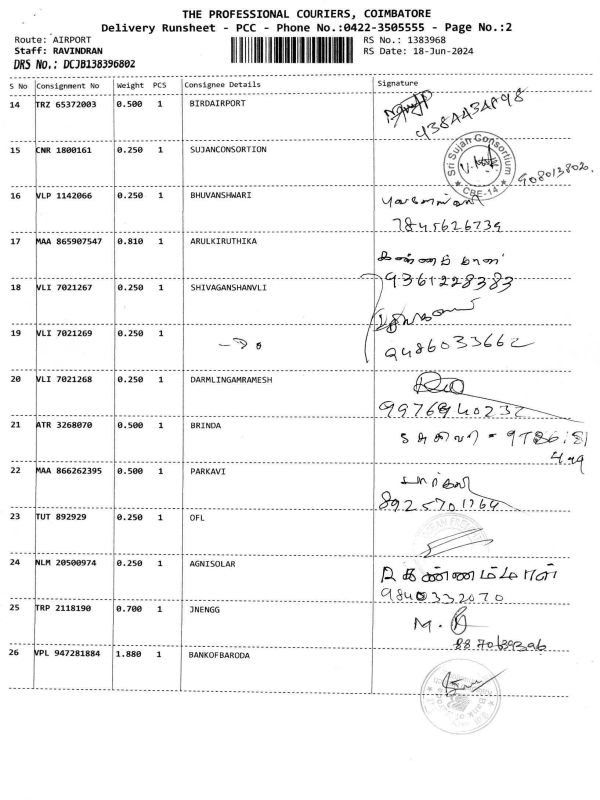 THE PROFESSIONAL COURIERS, COIMBATORE
Delivery Runsheet - PCC - Phone No.:0422-3505555 - Page No.:2
Route: AIRPORT
RS No.: 1383968
Staff: RAVINDRAN
RS Date: 18-Jun-2024
DRS No.: DCJB138396802
S No Consignment No Weight PCS Consignee Details Signature
14 TRZ 65372003 0.500 1 BIRDAIRPORT
15 CNR 1800161 0.250 1 SUJANCONSORTION
Sri Sujan Consortium
CBE-14
16 VLP 1142066 0.250 1 BHUVANSHWARI
7845626739
17 MAA 865907547 0.810 1 ARULKIRUTHIKA
9361228383
18 VLI 7021267 0.250 1 SHIVAGANSHANVLI
19 VLI 7021269 0.250 1
9486033662
20 VLI 7021268 0.250 1 DARMLINGAMRAMESH
21 ATR 3268070 0.500 1 BRINDA
22 MAA 866262395 0.500 1 PARKAVI
8925701764
23 TUT 892929 0.250 1 OFL
24 NLM 20500974 0.250 1 AGNISOLAR
9840332070
25 TRP 2118190 0.700 1 JNENGG
26 VPL 947281884 1.880 1 BANKOFBARODA